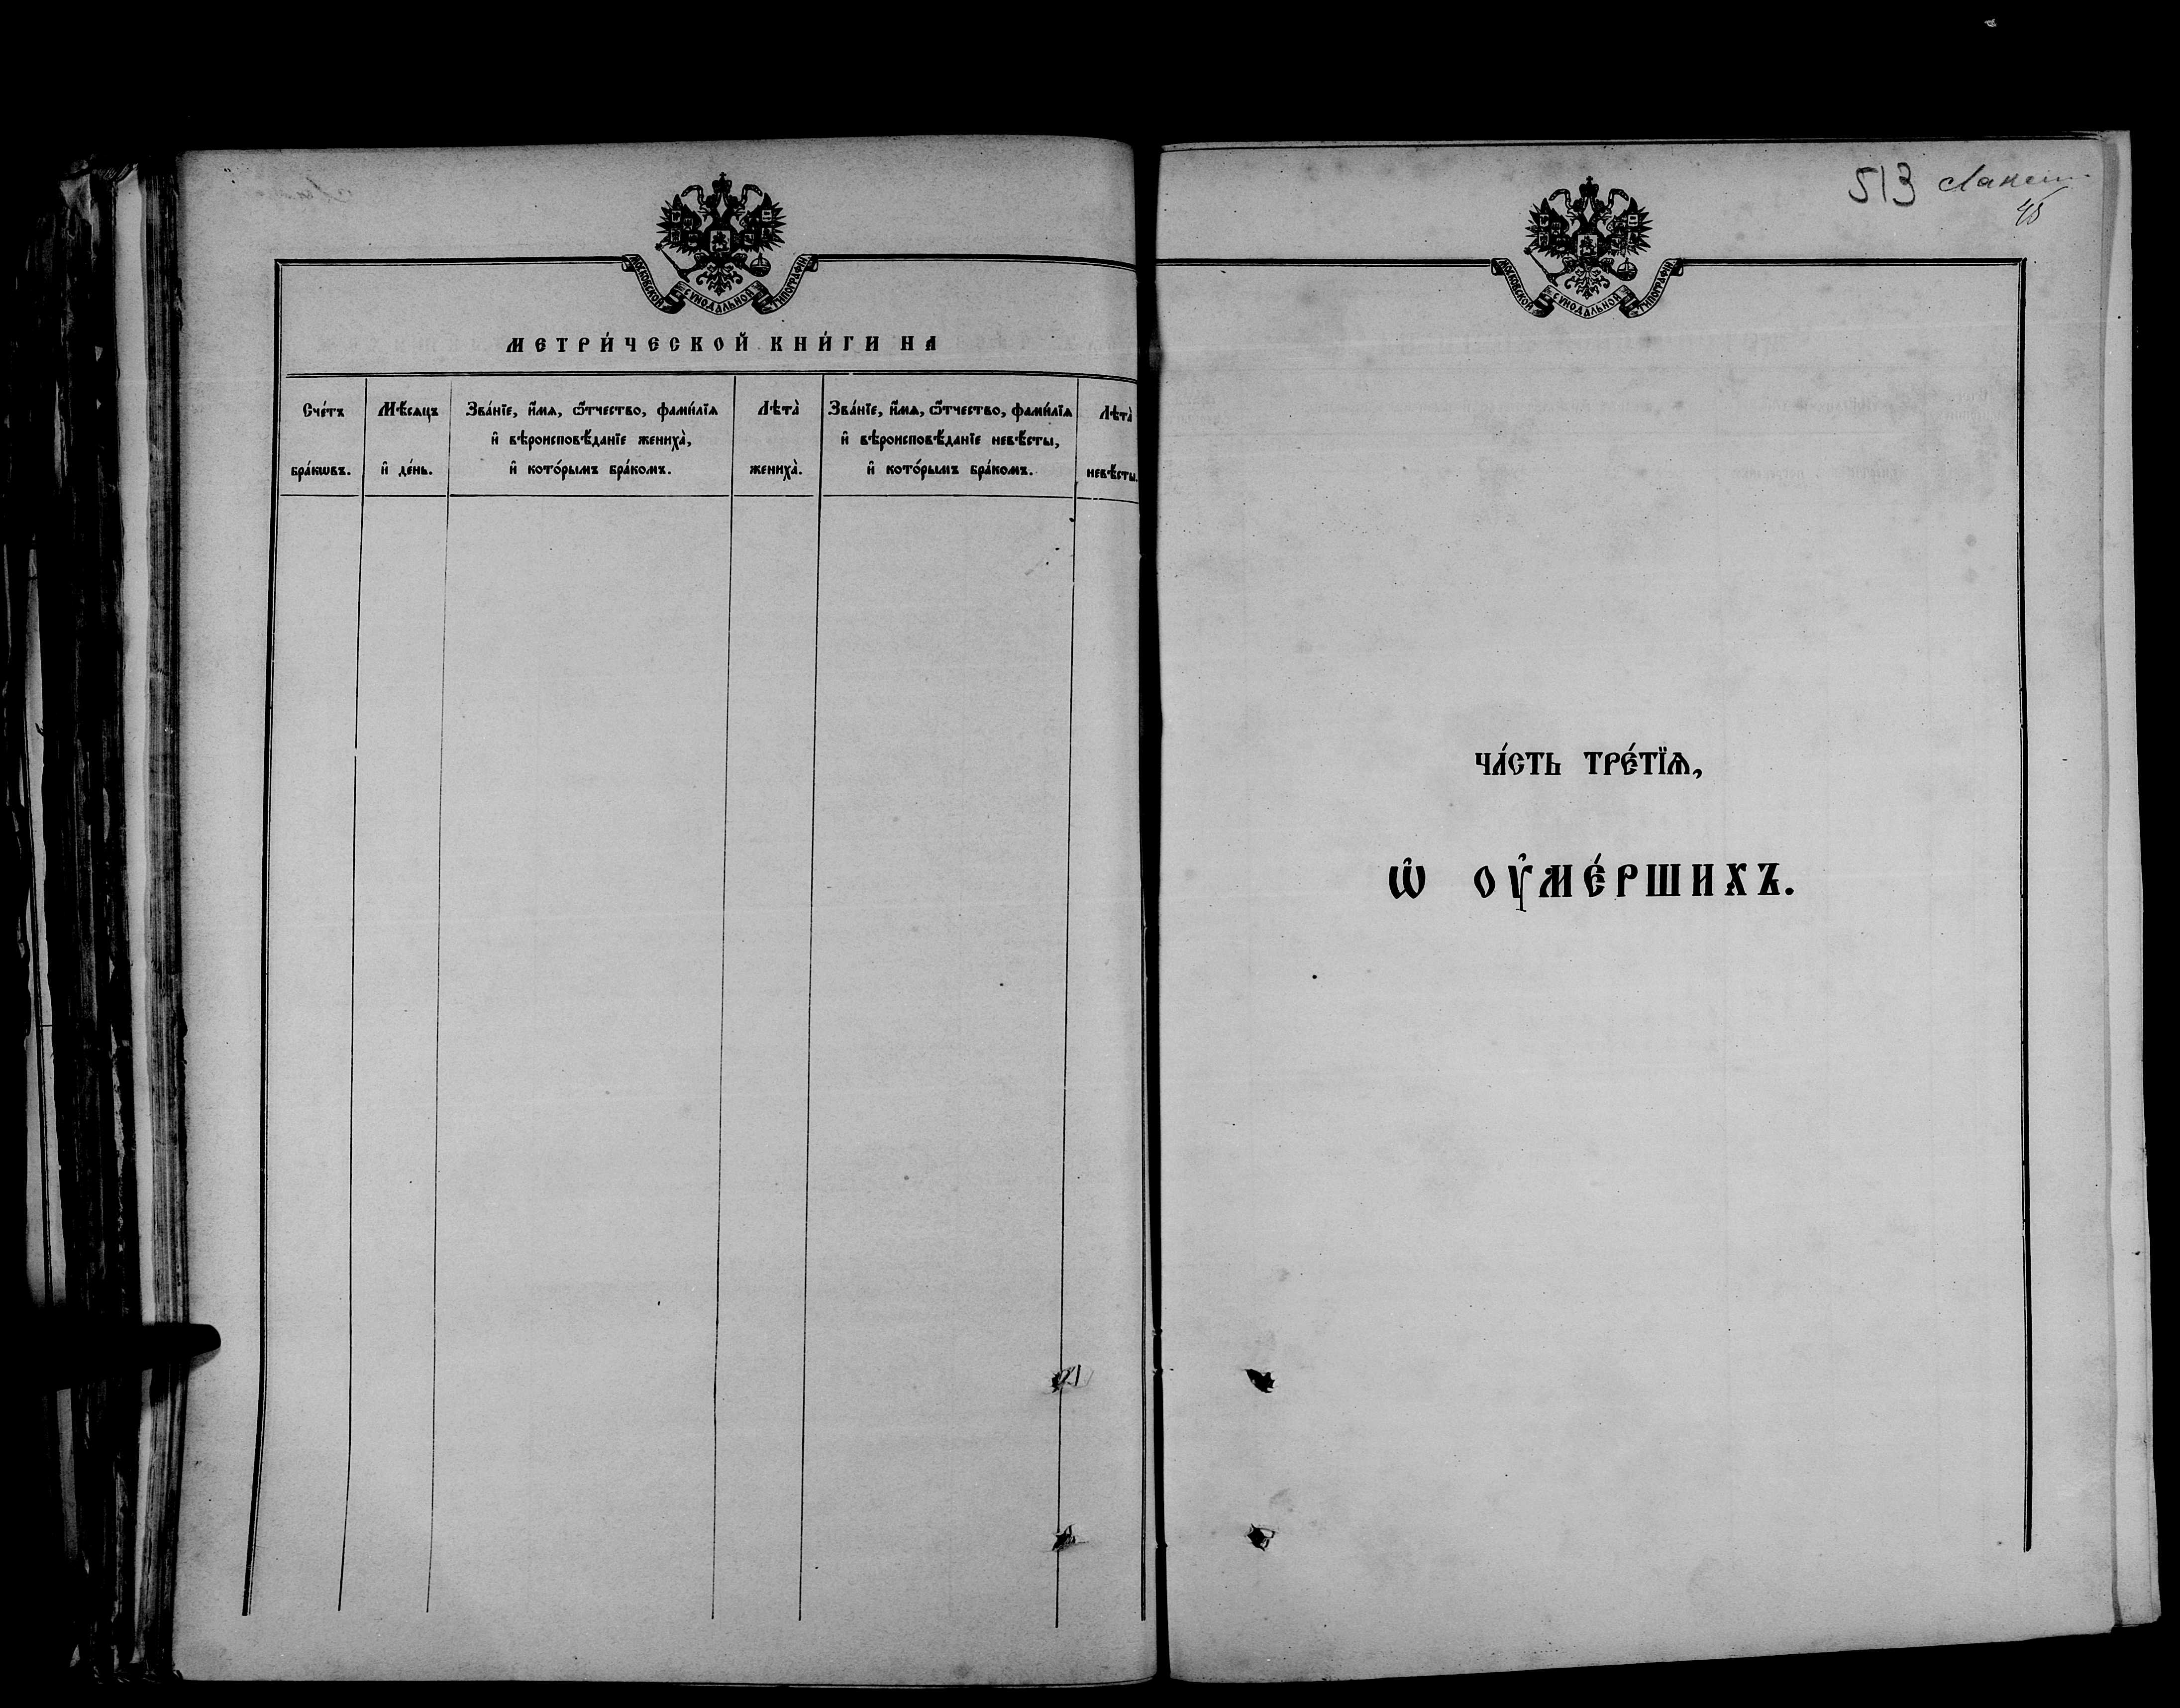 МОСКОВСКОЙ СѴНОДАЛЬНОЙ ТИПОГРАФІИ
МЕТРИ́ЧЕСКОЙ КНИ́ГИ НА
Сче́тъ бра́кѡвъ.
Мѣ́сяцъ и҆ де́нь.
Зва́нїе, и҆́мѧ, ѻ҆́тчество, фами́лїѧ
и҆ вѣроисповѣ́данїе жениха̀,
и҆ кото́рымъ бра́комъ.
Лѣта̀ жениха̀.
Зва́нїе, и҆́мѧ, ѻ҆́тчество, фами́лїѧ
и҆ вѣроисповѣ́данїе невѣ́сты,
и҆ кото́рымъ бра́комъ.
Лѣта̀ невѣ́сты.
513
48
МОСКОВСКОЙ СѴНОДАЛЬНОЙ ТИПОГРАФІИ
ЧА́СТЬ ТРЕ́ТЇѦ,
Ѡ҆ ОУ҆МЕ́РШИХЪ.